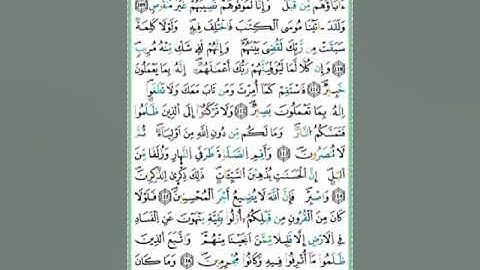 ءَابَآؤُهُم مِّن قَبْلُ ۚ وَإِنَّا لَمُوَفُّوهُمْ نَصِيبَهُمْ غَيْرَ مَنقُوصٍ ١٠٩
وَلَقَدْ ءَاتَيْنَا مُوسَى ٱلْكِتَٰبَ فَٱخْتُلِفَ فِيهِ ۚ وَلَوْلَا كَلِمَةٌ
سَبَقَتْ مِن رَّبِّكَ لَقُضِىَ بَيْنَهُمْ ۚ وَإِنَّهُمْ لَفِى شَكٍّ مِّنْهُ مُرِيبٍ
١١٠ وَإِنَّ كُلًّا لَّمَّا لَيُوَفِّيَنَّهُمْ رَبُّكَ أَعْمَٰلَهُمْ ۚ إِنَّهُۥ بِمَا يَعْمَلُونَ
خَبِيرٌ ١١١ فَٱسْتَقِمْ كَمَآ أُمِرْتَ وَمَن تَابَ مَعَكَ وَلَا تَطْغَوْا۟ ۚ
إِنَّهُۥ بِمَا تَعْمَلُونَ بَصِيرٌ ١١٢ وَلَا تَرْكَنُوٓا۟ إِلَى ٱلَّذِينَ ظَلَمُوا۟
فَتَمَسَّكُمُ ٱلنَّارُ وَمَا لَكُم مِّن دُونِ ٱللَّهِ مِنْ أَوْلِيَآءَ ثُمَّ
لَا تُنصَرُونَ ١١٣ وَأَقِمِ ٱلصَّلَوٰةَ طَرَفَىِ ٱلنَّهَارِ وَزُلَفًا مِّنَ
ٱلَّيْلِ ۚ إِنَّ ٱلْحَسَنَٰتِ يُذْهِبْنَ ٱلسَّيِّـَٔاتِ ۚ ذَٰلِكَ ذِكْرَىٰ لِلذَّٰكِرِينَ
١١٤ وَٱصْبِرْ فَإِنَّ ٱللَّهَ لَا يُضِيعُ أَجْرَ ٱلْمُحْسِنِينَ ١١٥ فَلَوْلَا
كَانَ مِنَ ٱلْقُرُونِ مِن قَبْلِكُمْ أُو۟لُوا۟ بَقِيَّةٍ يَنْهَوْنَ عَنِ ٱلْفَسَادِ
فِى ٱلْأَرْضِ إِلَّا قَلِيلًا مِّمَّنْ أَنجَيْنَا مِنْهُمْ ۗ وَٱتَّبَعَ ٱلَّذِينَ
ظَلَمُوا۟ مَآ أُتْرِفُوا۟ فِيهِ وَكَانُوا۟ مُجْرِمِينَ ١١٦ وَمَا كَانَ